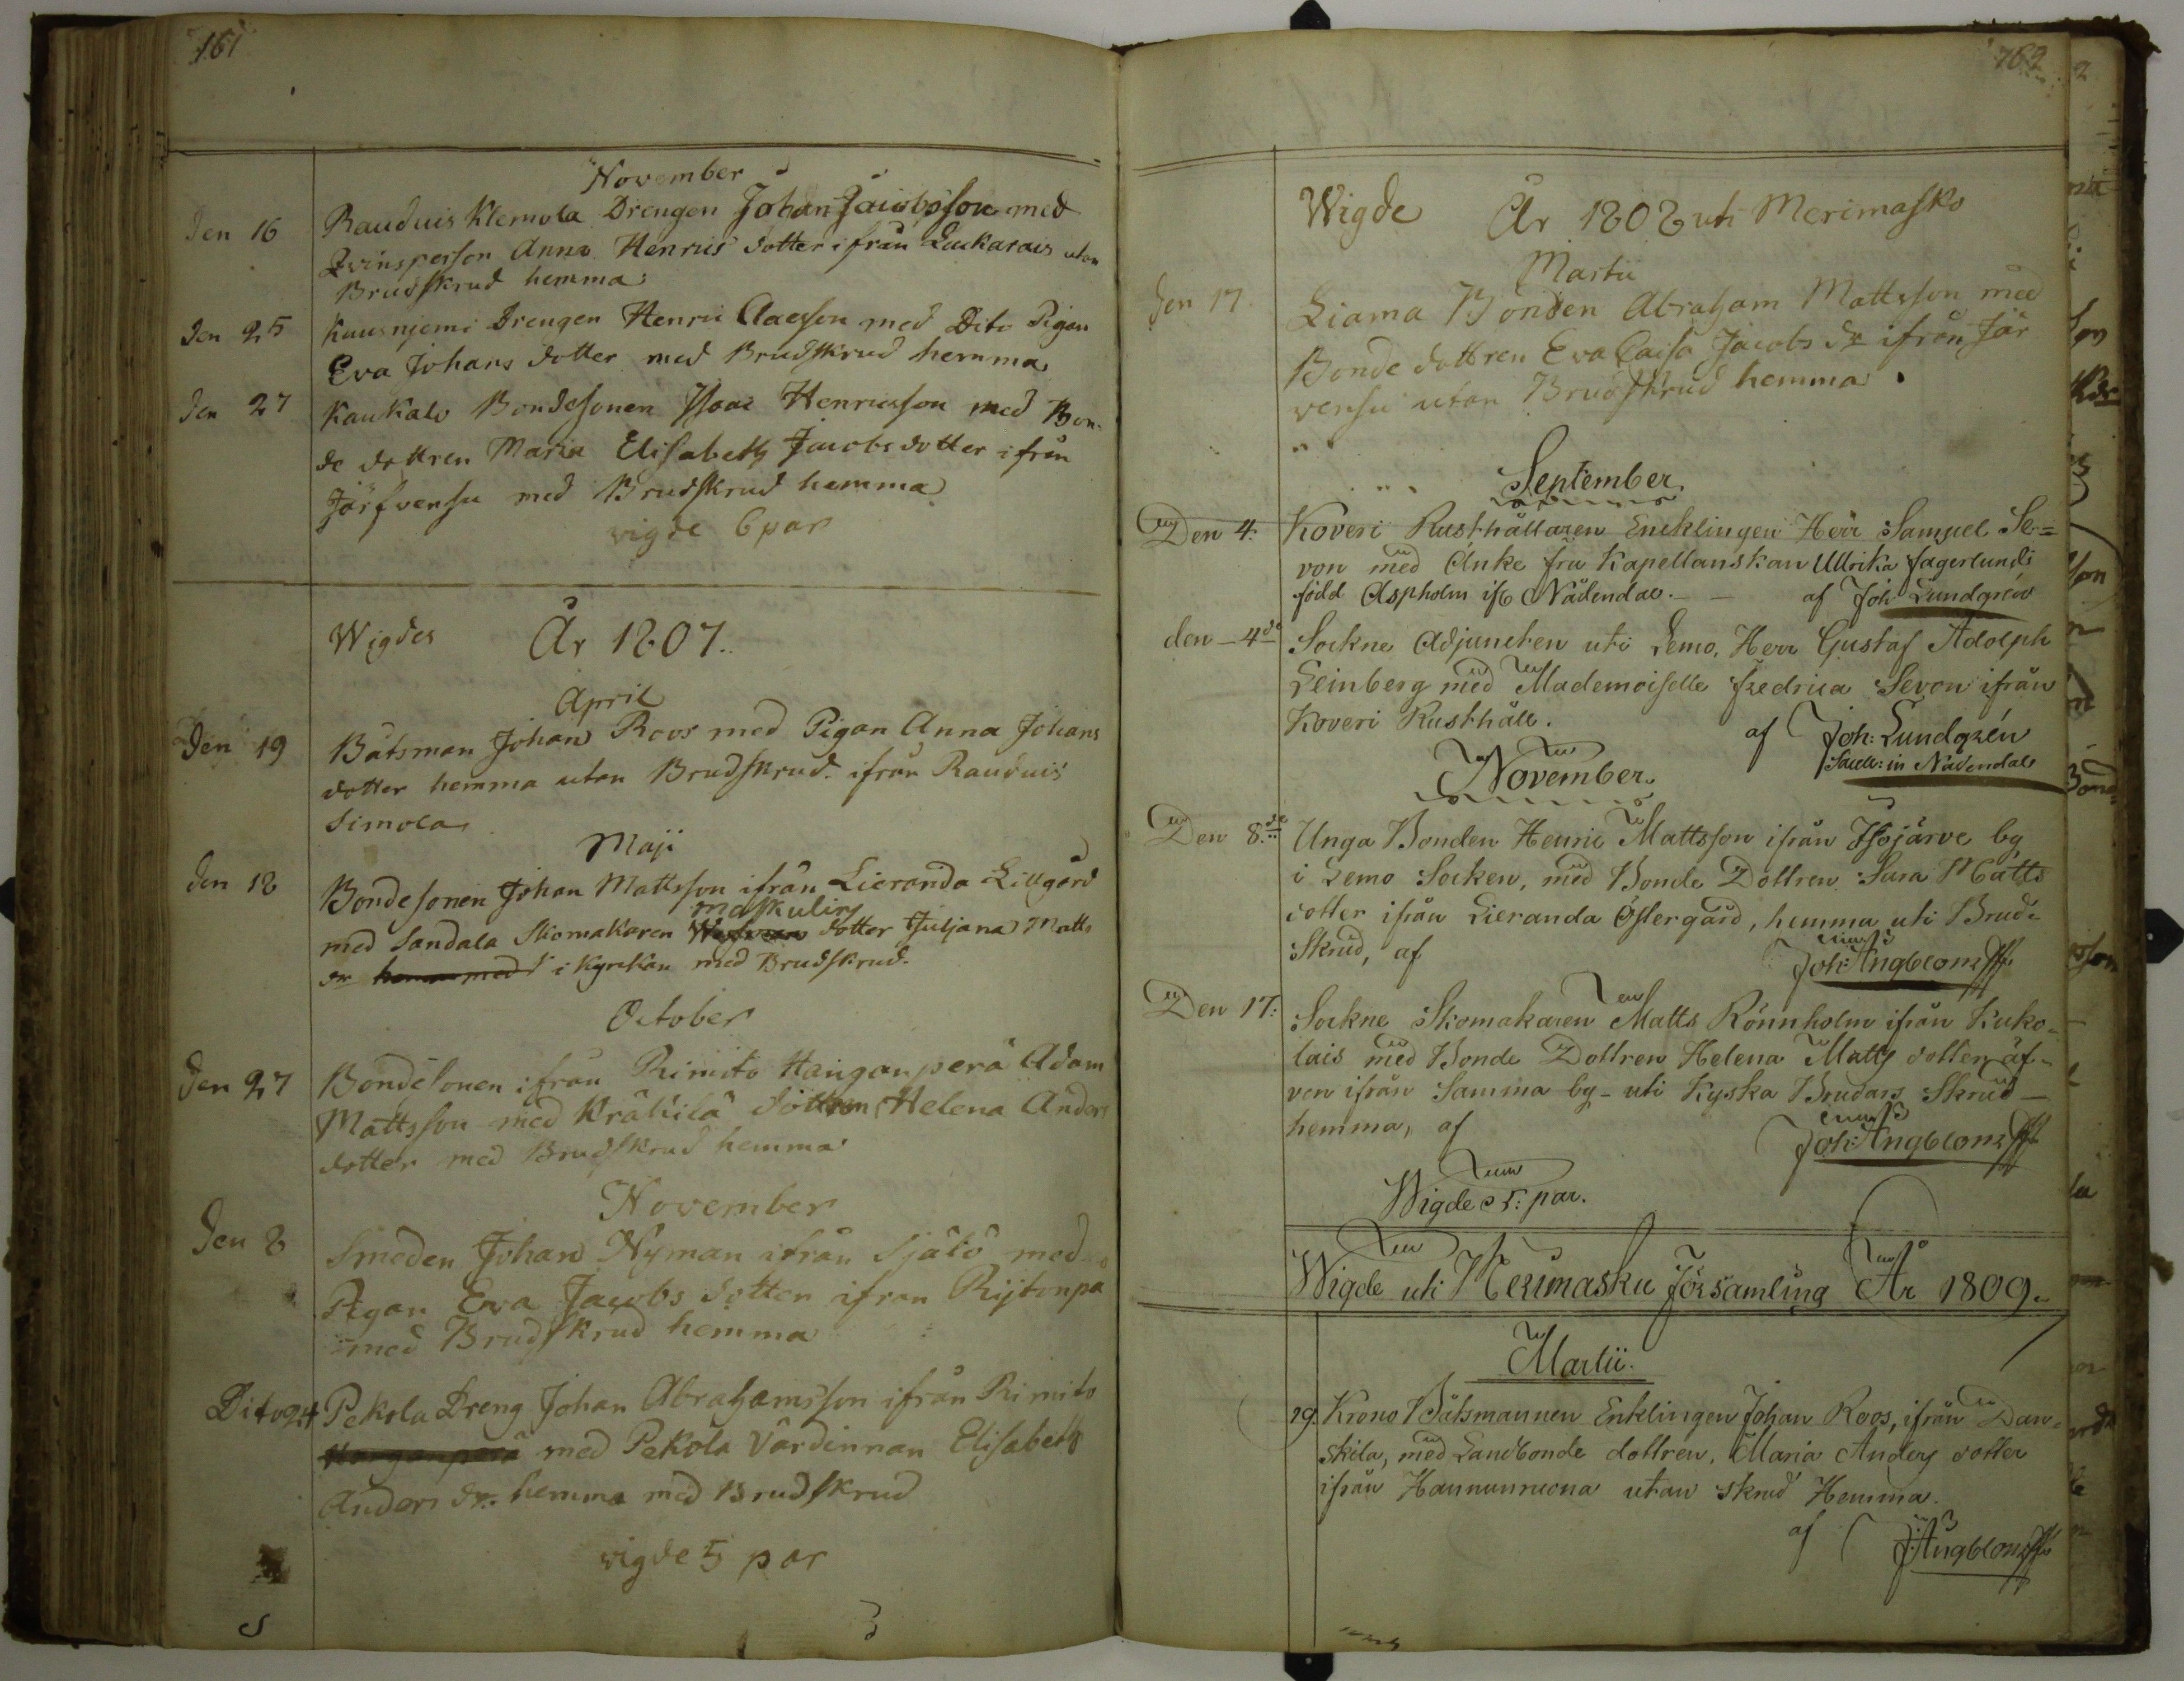 161
November
Den 16 Rauduis Klemola Drengen Johan Jacobsson med
Qvinsperson Anna Henrics dotter ifrån Luukarais utan
Brudskrud hemma
Den 25 Kuusnjemi Drengen Henric Claesson med Dito Pigan
Eva Johans dotter med Brudskrud hemma
Den 27 Kaukalo Bondesonen Isaac Henricsson med Bon-
de dottren Maria Elisabeth Jacobs dotter ifrån
Järfvensu med Brudskrud hemma
vigde 6 par
Wigdes År 1807.
April
Den 19 Båtsman Johan Roos med Pigan Anna Johans
dotter hemma utan Brudskrud ifrån Rauduis
Simola
Maji
Den 18 Bondesonen Johan Mattsson ifrån Lieranda Lillgård
maskulin
med Sandala Skomakaren dotter Juljana Matts
dr i kyrckan med Brudskrud.
October
Den 27 Bondesonen ifrån Rimito Hanganperä Adam
Mattsson med Kräkilä dottren Helena Anders
dotter med Brudskrud hemma
November
Den 8 Smeden Johan Nyman ifrån Själö med
Pigan Eva Jacobs dotter ifrån Rijtonpa
med Brudskrud hemma
Dito 24 Pekola Dreng Johan Abrahamsson ifrån Rimito
Hanganperä med Pekola Värdinnan Elisabeth
Anders dr. hemma med Brudskrud
vigde 5 par
162
Wigde År 1808 uti Merimasko
Martii
Den 17. Liama Bonden Abraham Mattsson med
Bonde dottren Eva Caisa Jacobs dr ifrån Jär
vensu utan Brudskrud hemma.
September
Den 4: Koveri Rusthållaren Encklingen Herr Samuel Se=
von med Änke fru Kapellanskan Ullrika Fagerlund
född Aspholm if. Nådendal. - af Joh Lundgrén
den - 4de Sockne Adjuncten uti Lemo, Herr Gustaf Adolph
Leinberg med Mademoiselle Fredrica Sevon ifrån
Koveri Rusthåll. af Joh: Lundgrén
Sacell: in Nådendal
November.
Den 8de Unga Bonden Henric Mattsson ifrån Isojärve by
i Lemo Socken, med Bonde Dottren Sara Matts
dotter ifrån Lieranda Östergård, hemma uti Brud-
Skrud, af Joh: Ångblom
Den 17: Sockne Skomakaren Matts Rönnholm ifrån Kuko-
lais med Bonde Dottren Helena Matts dotter äf-
ven ifrån Samma by - uti Kyska Brudars Skrud -
hemma, af Joh: Ångblom
Wigde 5: par.
Wigde uti Merimasku Församling År 1809.
Martii.
19. Krono Båtsmannen Enklingen Johan Roos, ifrån Dan-
skila, med Landbonde dottren, Maria Anders dotter
ifrån Hannunnuona utan skrud Hemma.
af J: Ångblom